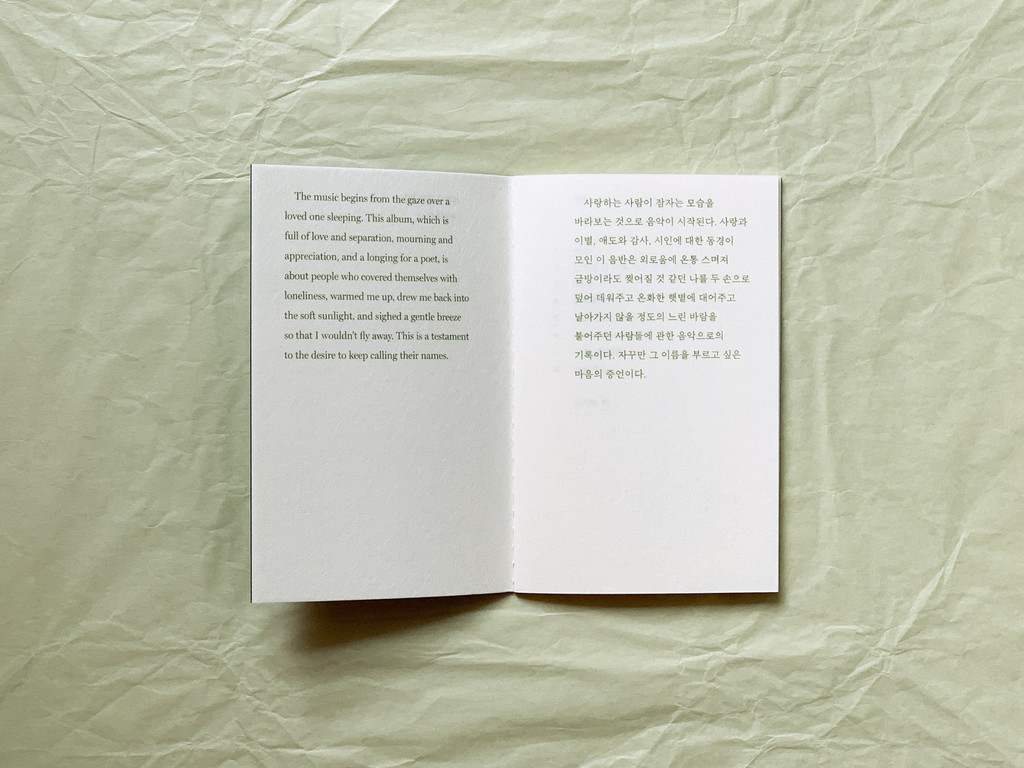 The music begins from the gaze over a
loved one sleeping. This album, which is
full of love and separation, mourning and
appreciation, and a longing for a poet, is
about people who covered themselves with
loneliness, warmed me up, drew me back into
the soft sunlight, and sighed a gentle breeze
so that I wouldn't fly away. This is a testament
to the desire to keep calling their names.
사랑하는 사람이 잠자는 모습을
바라보는 것으로 음악이 시작된다. 사랑과
이별, 애도와 감사, 시인에 대한 동경이
모인 이 음반은 외로움에 온통 스며져
금방이라도 찢어질 것 같던 나를 두 손으로
덮어 데워주고 온화한 햇볕에 대어주고
날아가지 않을 정도의 느린 바람을
불어주던 사람들에 관한 음악으로의
기록이다. 자꾸만 그 이름을 부르고 싶은
마음의 증언이다.